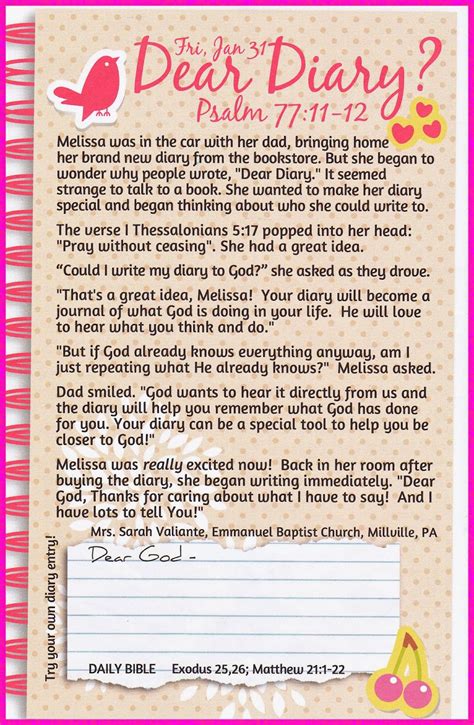 Fri, Jan 31
Dear Diary?
Psalm 77:11-12
Melissa was in the car with her dad, bringing home
her brand new diary from the bookstore. But she began to
wonder why people wrote, "Dear Diary." It seemed
strange to talk to a book. She wanted to make her diary
special and began thinking about who she could write to.
The verse I Thessalonians 5:17 popped into her head:
"Pray without ceasing". She had a great idea.
“Could I write my diary to God?” she asked as they drove.
"That's a great idea, Melissa! Your diary will become a
journal of what God is doing in your life. He will love
to hear what you think and do."
"But if God already knows everything anyway, am I
just repeating what He already knows?" Melissa asked.
Dad smiled. "God wants to hear it directly from us and
the diary will help you remember what God has done
for you. Your diary can be a special tool to help you be
closer to God!"
Melissa was really excited now! Back in her room after
buying the diary, she began writing immediately. "Dear
God, Thanks for caring about what I have to say! And I
have lots to tell You!"
Mrs. Sarah Valiante, Emmanuel Baptist Church, Millville, PA
Try your own diary entry!
Dear God -
DAILY BIBLE Exodus 25,26; Matthew 21:1-22